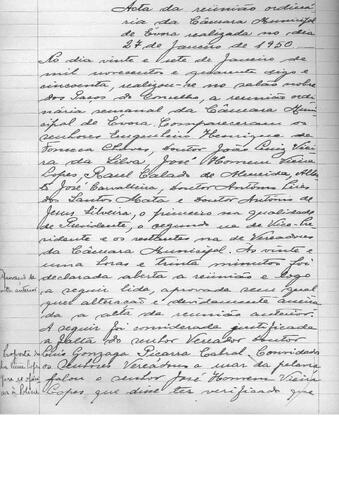 Acta da reunião ordiná-
ria da Câmara Municipal
de Évora realizada no dia
27 de Janeiro de 1950
No dia vinte e sete de Janeiro de
mil novecentos e quarenta digo e
cincoenta, realizou-se no salão nobre
dos Paços do Concelho, a reunião ordi-
nária semanal da Câmara Muni-
cipal de Évora. Compareceram os
senhores Engenheiro Henrique da
Fonseca Chaves, doutor João Luiz Viei-
ra da Silva, José Homem Vieira
Lopes, Raul Calado de Almeida, Alber-
to José Carvalheira, doutor António Pires
dos Santos Mata e doutor António de
Jesus Silveira, o primeiro na qualidade
de Presidente, o segundo na de Vice-Pre-
sidente e os restantes na de Vereadores
da Câmara Municipal. Às vinte e
uma horas e trinta minutos foi
declarada aberta a reunião e logo
a seguir lida, aprovada sem qual-
quer alteração e devidamente assina-
da a acta da reunião anterior.
A seguir foi considerada justificada
a falta do senhor Vereador doutor
Luis Gonzaga Picarra Cabral. Convidados
os senhores Vereadores a usar da palavra
falou o senhor José Homem Vieira
Lopes, que disse ter verificado que
acta anterior
Proposta do